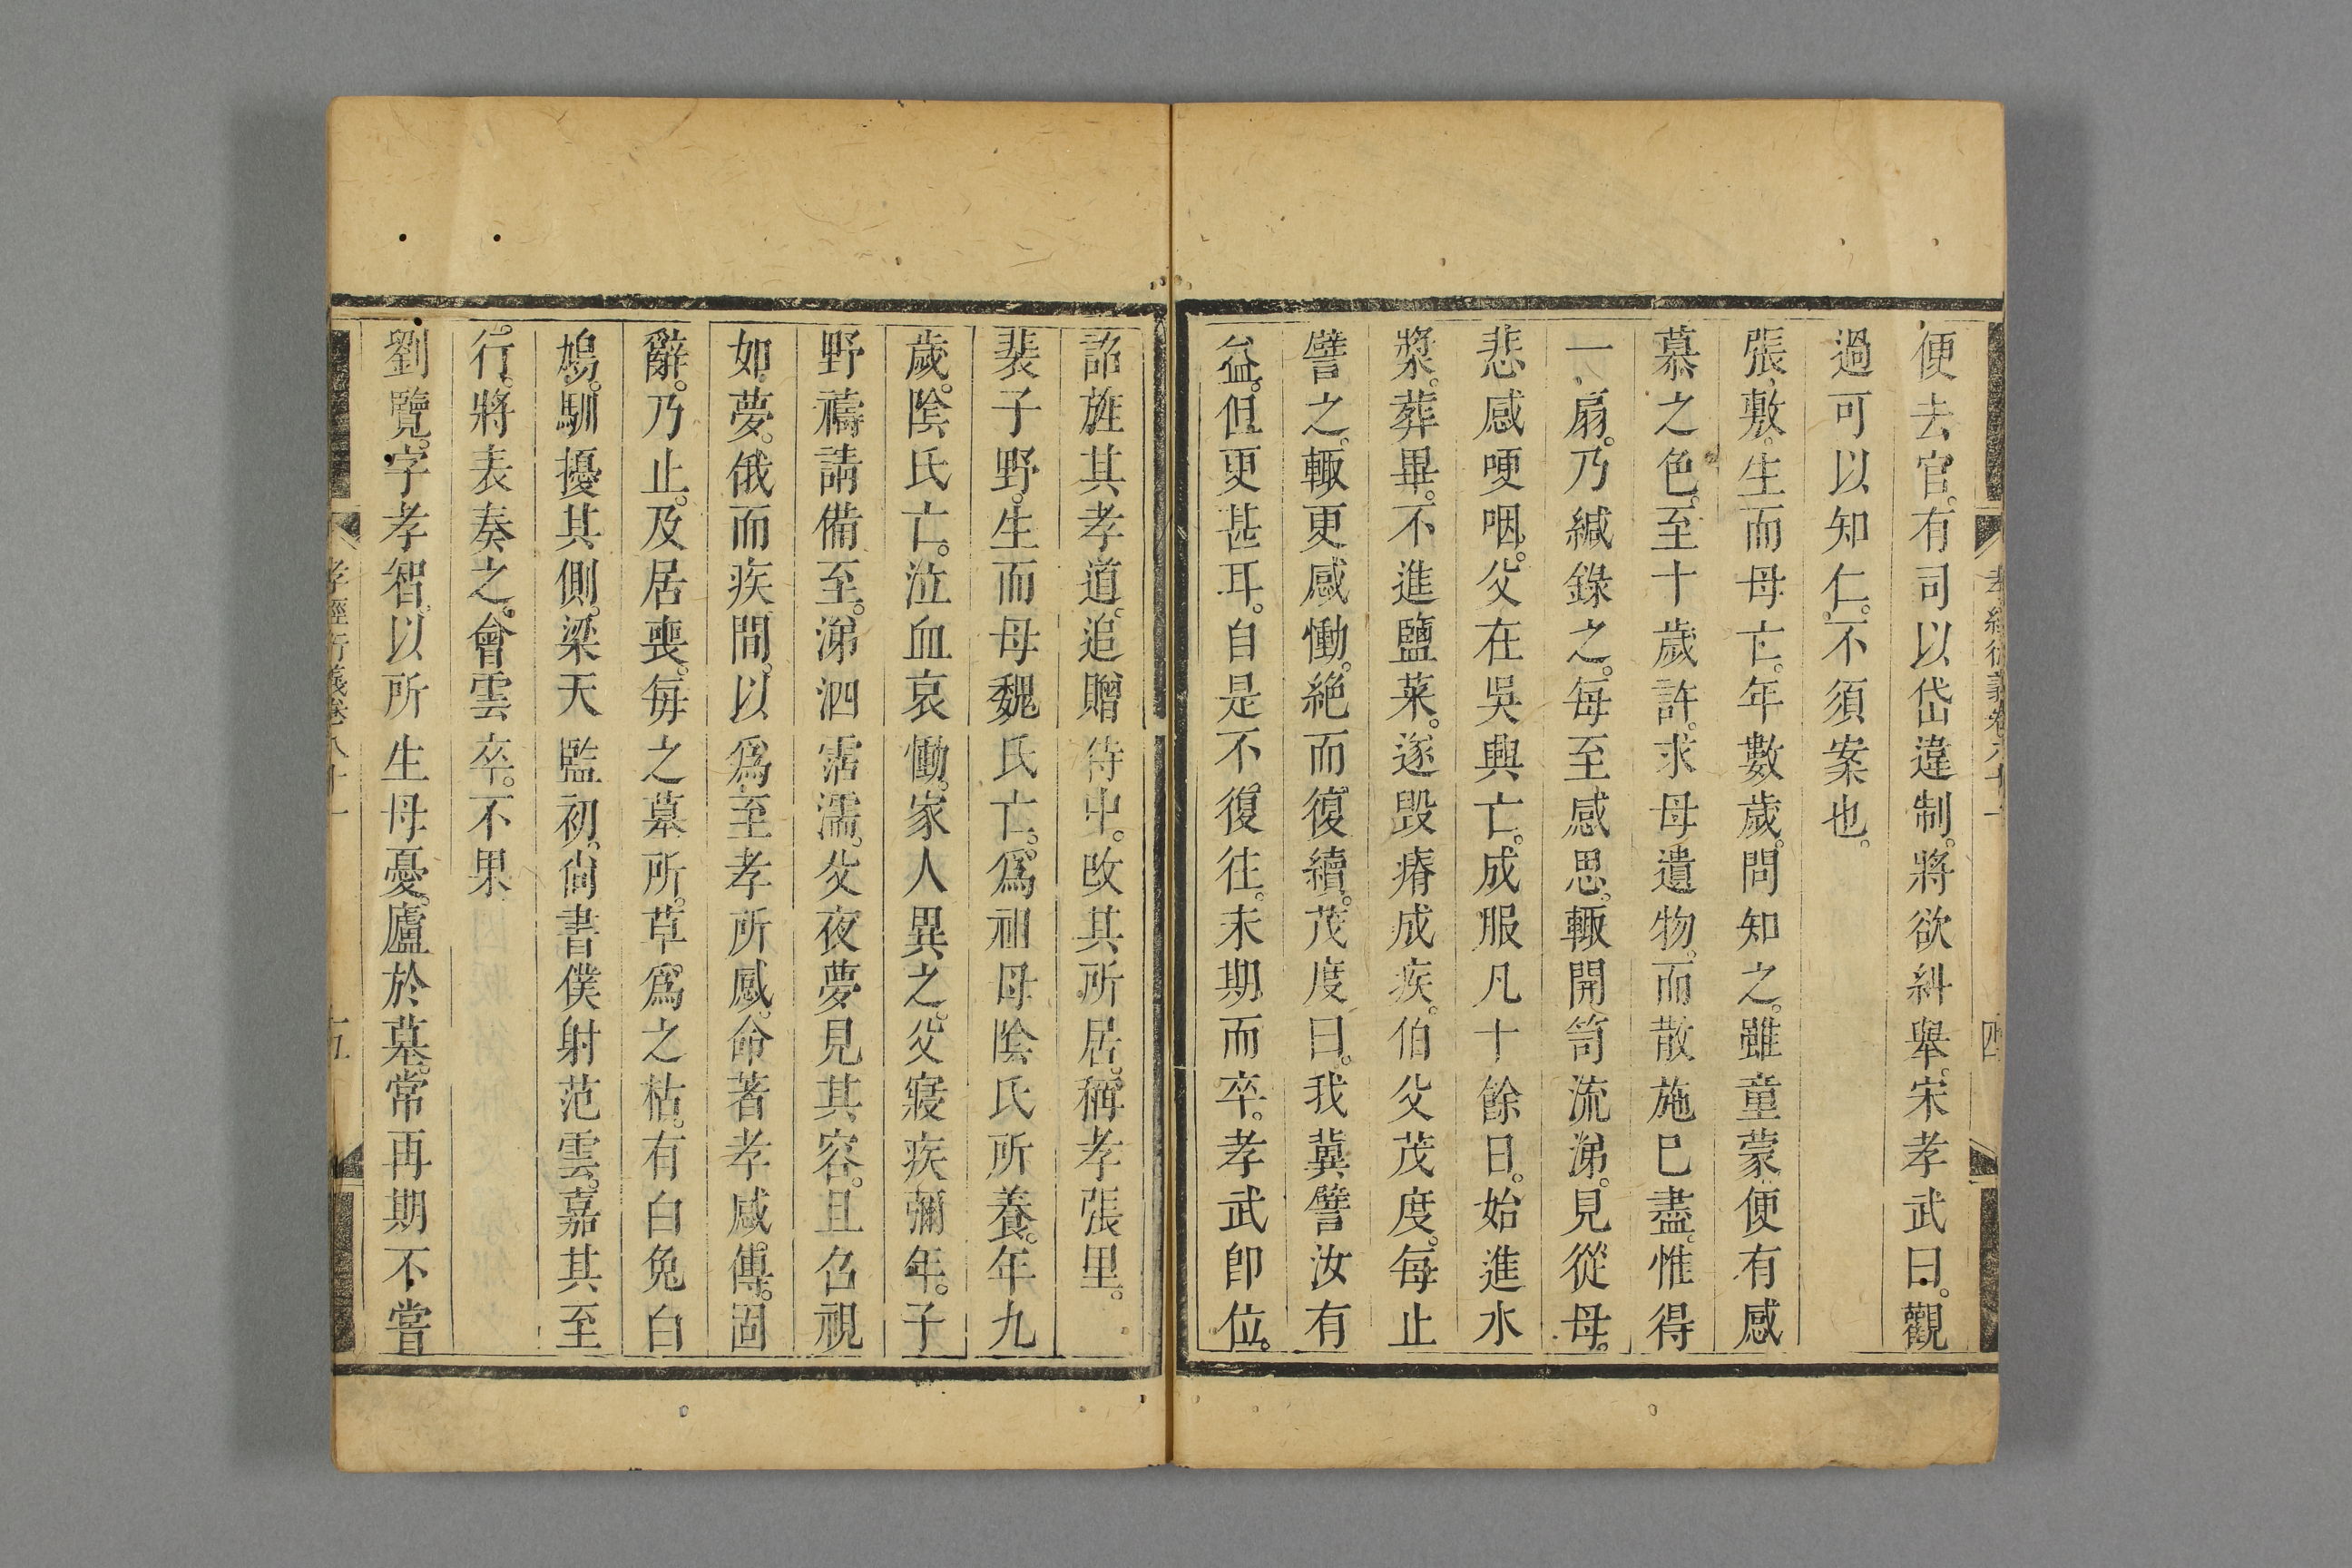 孝經衍義卷八十一 四
便去官。有司以岱違制。將欲糾舉。宋孝武曰。觀
過可以知仁。不須案也。
張敷。生而母亡。年數歲。問知之。雖童蒙便有感
慕之色。至十歲許。求母遺物。而散施已盡。惟得
一扇。乃緘錄之。每至感思。輙開笥流涕。見從母。
悲感哽咽。父在吳興亡。成服凡十餘日。始進水
漿。葬畢。不進鹽菜。遂毁瘠成疾。伯父茂度。每止
譬之。輙更感慟。絕而復續。茂度曰。我冀譬汝有
益。但更甚耳。自是不復往。未期而卒。孝武卽位。
詔旌其孝道。追贈侍中。改其所居。稱孝張里。
裴子野。生而母魏氏亡。爲祖母陰氏所養。年九
歲。陰氏亡。泣血哀慟。家人異之。父寢疾彌年。子
野禱請備至。涕泗霑濡。父夜夢見其容。且名視
如夢。俄而疾間。以爲至孝所感。命著孝感傳。固
辭。乃止。及居喪。每之墓所。草爲之枯。有白兔白
鳩。馴擾其側。梁天監初。尙書僕射范雲。嘉其至
行。將表奏之。會雲卒。不果
劉覽。字孝智。以所生母憂。廬於墓。常再期不嘗
孝經衍義卷八十一 五